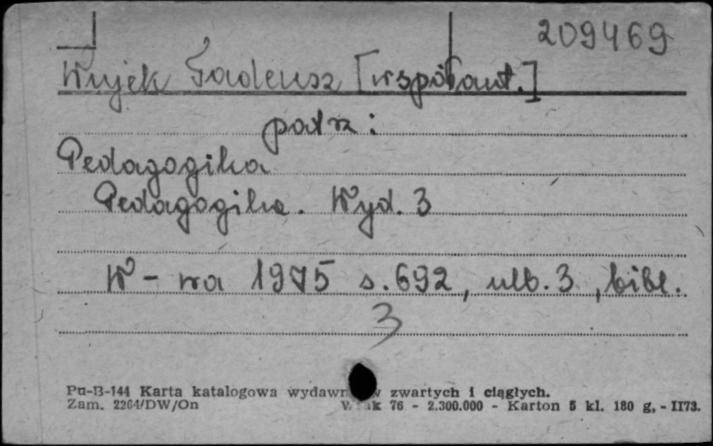 209469
Wujek Tadeusz [współaut.]
patrz:
Pedagogika
Pedagogika. Wyd. 3
W-wa 1975 s. 692, nlb. 3, bibl.
3
Pu-B-144 Karta katalogowa zwartych i ciągłych.
Zam. 2264/DW/On 76 - 2.300.000 - Karton 5 kl. 180 g, - II73.